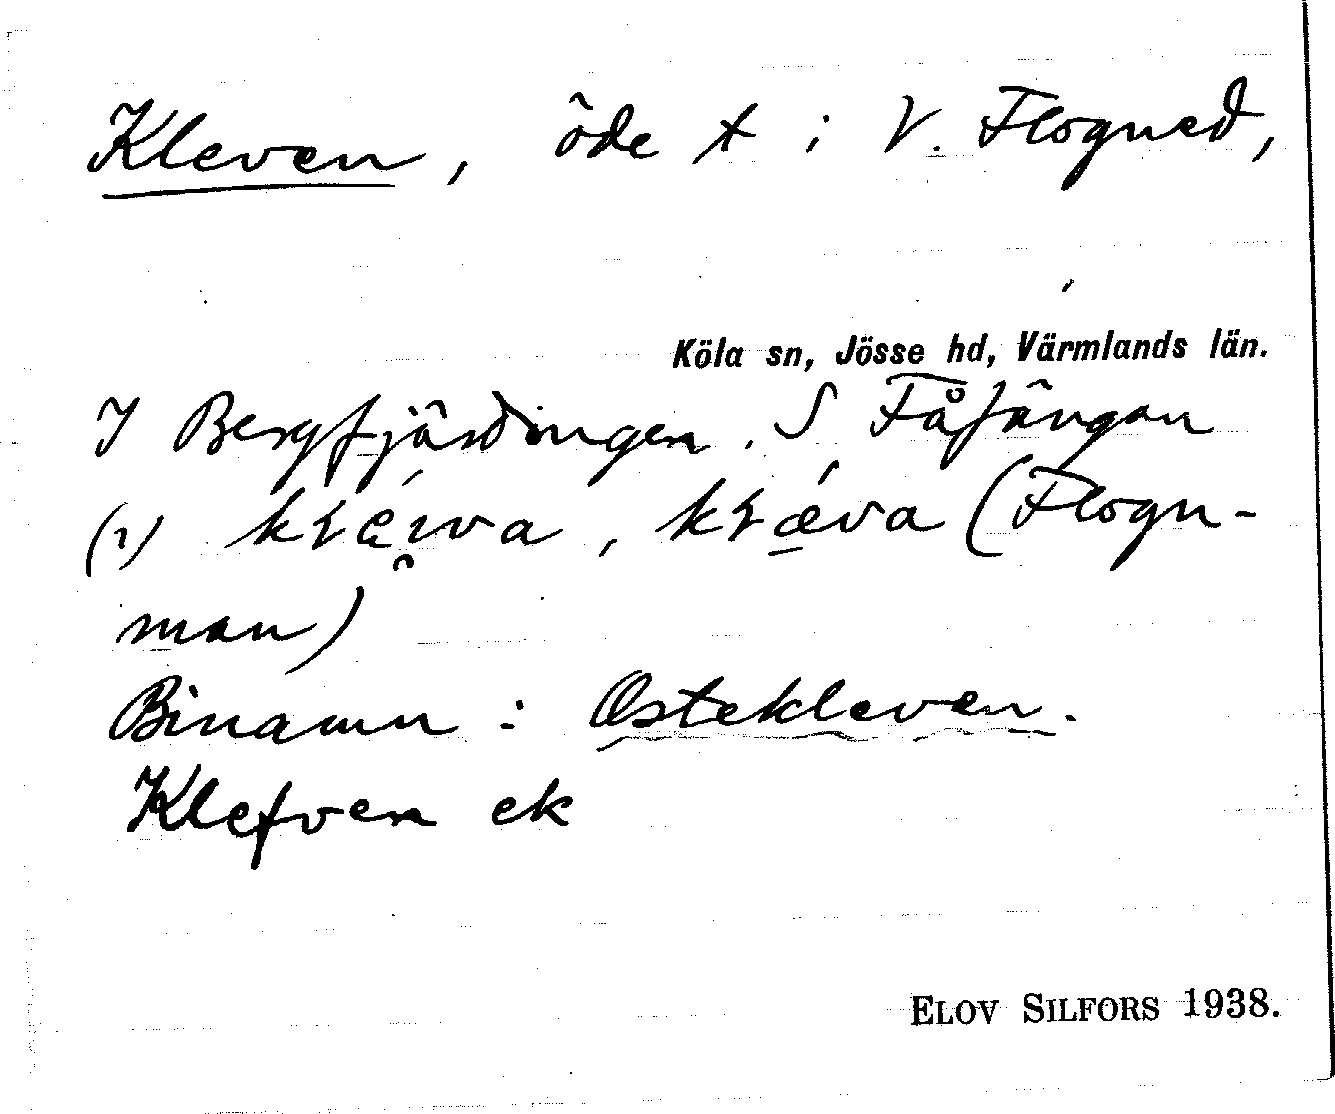 Kleven, öde t i V. Flogned,
Köla sn, Jösse hd, Värmlands län.
I Bergfjärdingen. S Fåfängan
(1) , (Flogn-
man)
Binamn: Ostekleven.
Klefven ek
ELOV SILFORS 1938.